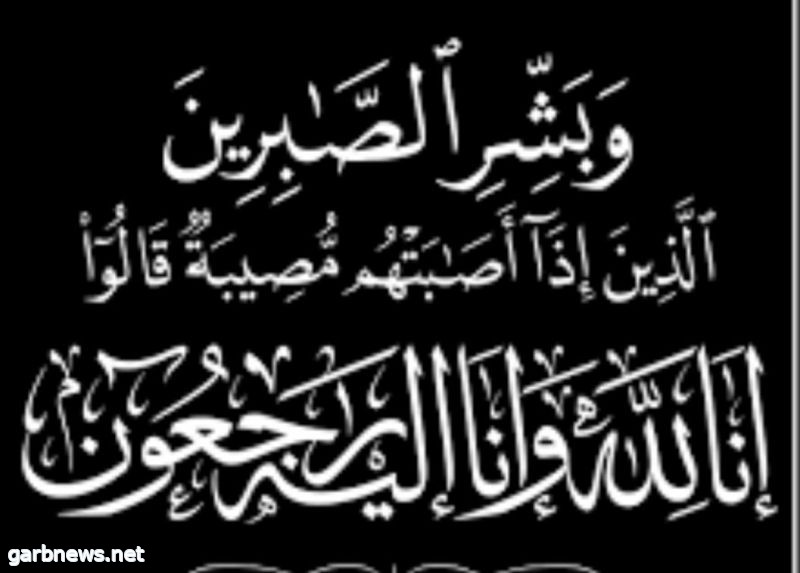 وَبَشِّرِ ٱلصَّٰبِرِينَ
ٱلَّذِينَ إِذَآ أَصَٰبَتْهُم مُّصِيبَةٌ قَالُوٓا۟
إِنَّا لِلَّهِ وَإِنَّا إِلَيْهِ رَاجِعُونَ
garbnews.net